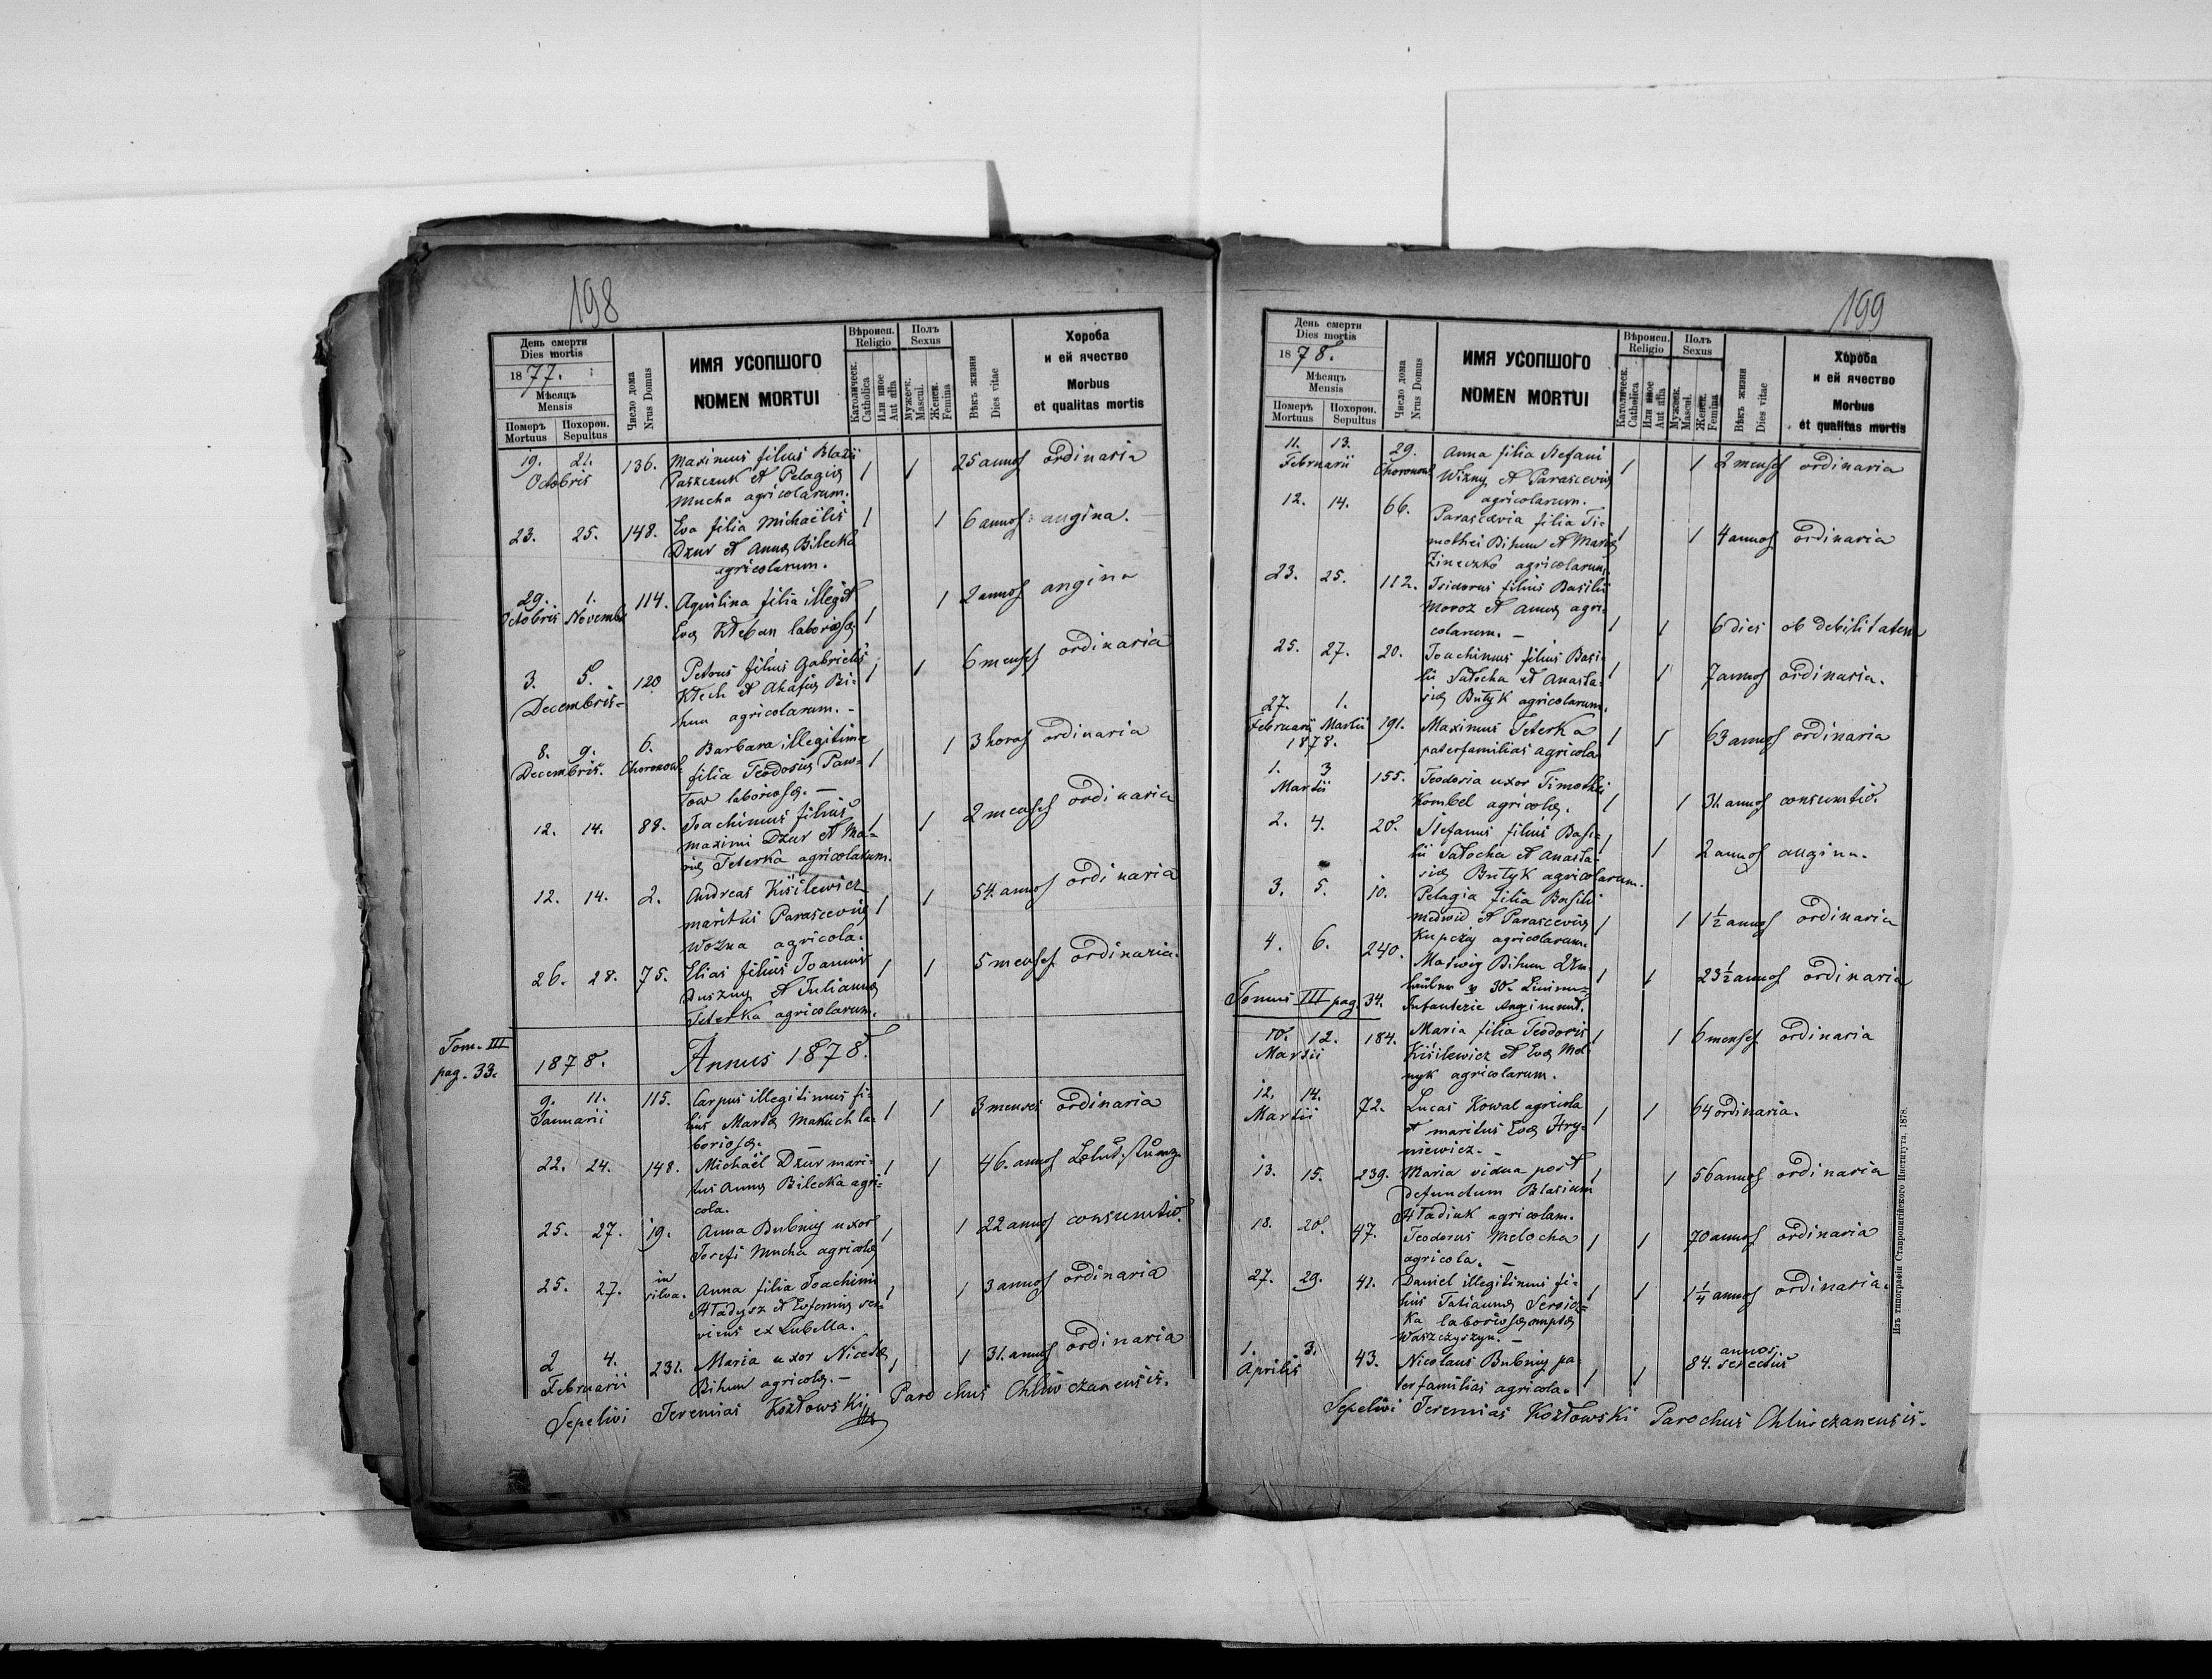 198
День смерти
Dies mortis
1877.
Мѣсяцъ
Mensis
Померъ Mortuus
Похорон. Sepultus
Число дома
Nrus Domus
ИМЯ УСОПШОГО
NOMEN MORTUI
Вѣроисп.
Religio
Католическ.
Catholica
Или иное
Aut alia
Полъ
Sexus
Мужеск.
Mascul.
Женск.
Femina
Вѣкъ жизни
Dies vitae
Хороба
и ей ячество
Morbus
et qualitas mortis
19. 21. 136. Maximus filius Blazii
Octobris Paszczuk et Pelagiæ 1 1 25 annos ordinaria
Mucha agricolarum.
23. 25. 148. Eva filia Michaëlis 1 1 6 annos angina.
Dzur et Annæ Bilecka
agricolarum.
29. 1. 114. Aquilina filia illegit 1 2 annos angina
Octobris Novemb. Evæ Kłeban laboriosæ 1
3. 5. 120 Petrus filius Gabrielis 1 1 6 menses ordinaria
Decembris Ktech et Ahafiæ Bi-
hun agricolarum. -
8. 9. 6. Barbara illegitima 1 3 horas ordinaria
Decembris. Choronow. filia Teodosiæ Paw- 1
Tow laboriosæ. -
12. 14. 88. Joachimus filius 1 1 2 menses ordinaria
Maximi Dzur et Ma-
riæ Teterka agricolarum.
12. 14. 2. Andreas Kisilewicz 54. annos ordinaria
maritus Parasceviæ 1 1
Wożna agricola.
26. 28. 75. Elias filius Joannis 1 1 5 menses ordinaria.
Duszny et Julianna
Teterka agricolarum.
Tom. III
pag. 33.
1878. Annus 1878.
9. 11. 115. Carpus illegitimus fi-
Januarii lius Martæ Makuch la- 1 1 3 menses ordinaria
boriosæ. -
22. 24. 148. Michaël Dzur mari- 1 1 46. annos
tus Annæ Bilecka agri-
cola.
25. 27. 19. Anna Bubniy uxor 1 1 22 annos consumtio.
Josefi Mucha agricolæ
25. 27. in silva. Anna filia Joachimi 1 1 3 annos ordinaria
Hładysz et Eufemiæ ser-
viens ex Lubella.
2 4. 231. Maria uxor Nicetæ 1 1 31. annos ordinaria
Februarii Bihun agricolæ. -
Sepelivi Jeremias Kozłowski Parochus Chliwczanensis.
199
День смерти
Dies mortis
1878.
Мѣсяцъ
Mensis
Померъ Mortuus
Похорон. Sepultus
Число дома
Nrus Domus
ИМЯ УСОПШОГО
NOMEN MORTUI
Вѣроисп.
Religio
Католическ.
Catholica
Или иное
Aut alia
Полъ
Sexus
Мужеск.
Mascul.
Женск.
Femina
Вѣкъ жизни
Dies vitae
Хороба
и ей ячество
Morbus
et qualitas mortis
11. 13. 29. Anna filia Stefani
Februarii Choronow. Wizny et Parasceviæ 1 1 2 menses ordinaria
agricolarum.
12. 14. 66. Parascevia filia Ti-
mothei Bihun et Mariæ 1 1 4 annos ordinaria
Zineczko agricolarum.
23. 25. 112. Isidorus filius Basilii
Moroz et Annæ agri-
colarum. - 1 1 6 dies ob debilitatem
25. 27. 20. Joachimus filius Basi-
lii Sałocha et Anasta- 1 1 7 annos ordinaria.
siæ Butyk agricolarum.
27. 1.
Februarii Martii 191. Maximus Teterka 1 1 63 annos ordinaria
1878. paterfamilias agricola
1. 3 155. Teodosia uxor Timothei
Martii Kombel agricolæ. 1 1 31. annos consumtio.
2. 4. 20. Stefanus filius Basi- 1
lii Sałocha et Anasta- 1 2 annos angina.
siæ Butyk agricolarum.
3. 5. 10. Pelagia filia Basilii
Medwid et Parasceviæ 1 1 1½ annos ordinaria
Kupczy agricolarum.
4. 6. 240. Matwiy Bihun
30. 1 1 23½ annos ordinaria
Infanterie Regiment.
Tomus III pag. 34.
10. 12. 184. Maria filia Teodoris 1 1 6 menses ordinaria
Martii Kisilewicz et Evæ Mel-
nyk agricolarum.
12. 14. 72. Lucas Kowal agricola 1 1 64 ordinaria.
Martii et maritus Evæ Hry-
niewicz. -
13. 15. 239. Maria vidua post 1 1 56 annos ordinaria
defunctum Blasium
Hładiuk agricolam.
18. 20. 47. Teodorus Melocha 1 1 70 annos ordinaria
agricola. -
27. 29. 41. Daniel illegitimus fi-
lius Tatiannæ 1 1 1¼ annos ordinaria.
laboriosæ nuptæ
Waszczyszyn. -
1. 3. 43. Nicolaus Bubniy pa- 1 1 84. annos. senectus
Aprilis terfamilias agricola.
Sepelivi Jeremias Kozłowski Parochus Chliwczanensis.
Изъ типографіи Ставропигійского Института. 1878.